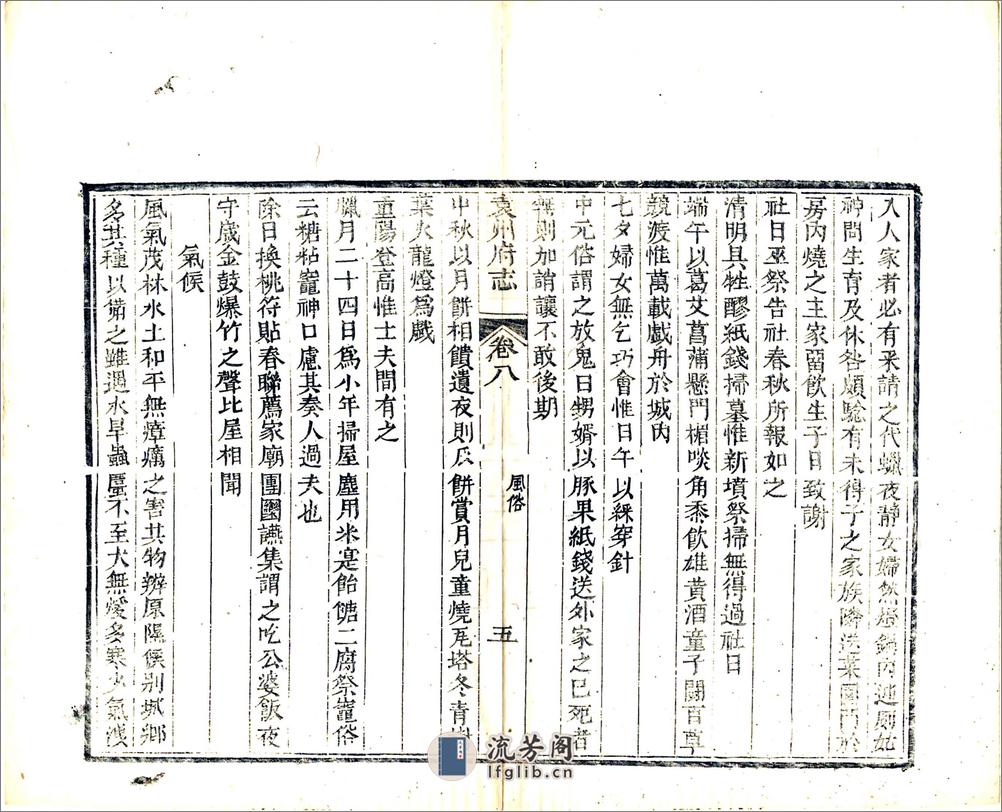 入人家者必有采請之代蠟夜靜女婦然燈鎮內迎廁姑
神問生育及休咎頗驗有未得子之家族隣送菜園門於
房內燒之主家畱飲生子日致謝
社日巫祭告社春秋所報如之
清明具牲醪紙錢掃墓惟新墳祭掃無得過社日
端午以葛艾菖蒲懸門楣啖角黍飲雄黄酒童子鬪百草
競渡惟萬載戯舟於城內
七夕婦女無乞巧會惟日午以綵穿針
中元俗謂之放鬼日甥婿以豚果紙錢送外家之已死者
無則加誚讓不敢後期
袁州府志
卷八
風俗
五
中秋以月餅相饋遺夜則瓜餅賞月兒童燒瓦塔冬青樹
葉火龍燈爲戯
重陽登高惟士夫間有之
臘月二十四日爲小年掃屋塵用米寔飴餹二腐祭竈俗
云糖粘竈神口慮其奏人過夫也
除日換桃符貼春聯薦家廟團圞讌集謂之吃公婆飯夜
守歲金鼓爆竹之聲比屋相聞
氣候
風氣茂林水土和平無瘴癘之害其物辨原隰候别城鄉
多其種以備之雖遇水旱蟲蜃不至大無煖多寒少氣淺
流芳阁
lfglib.cn